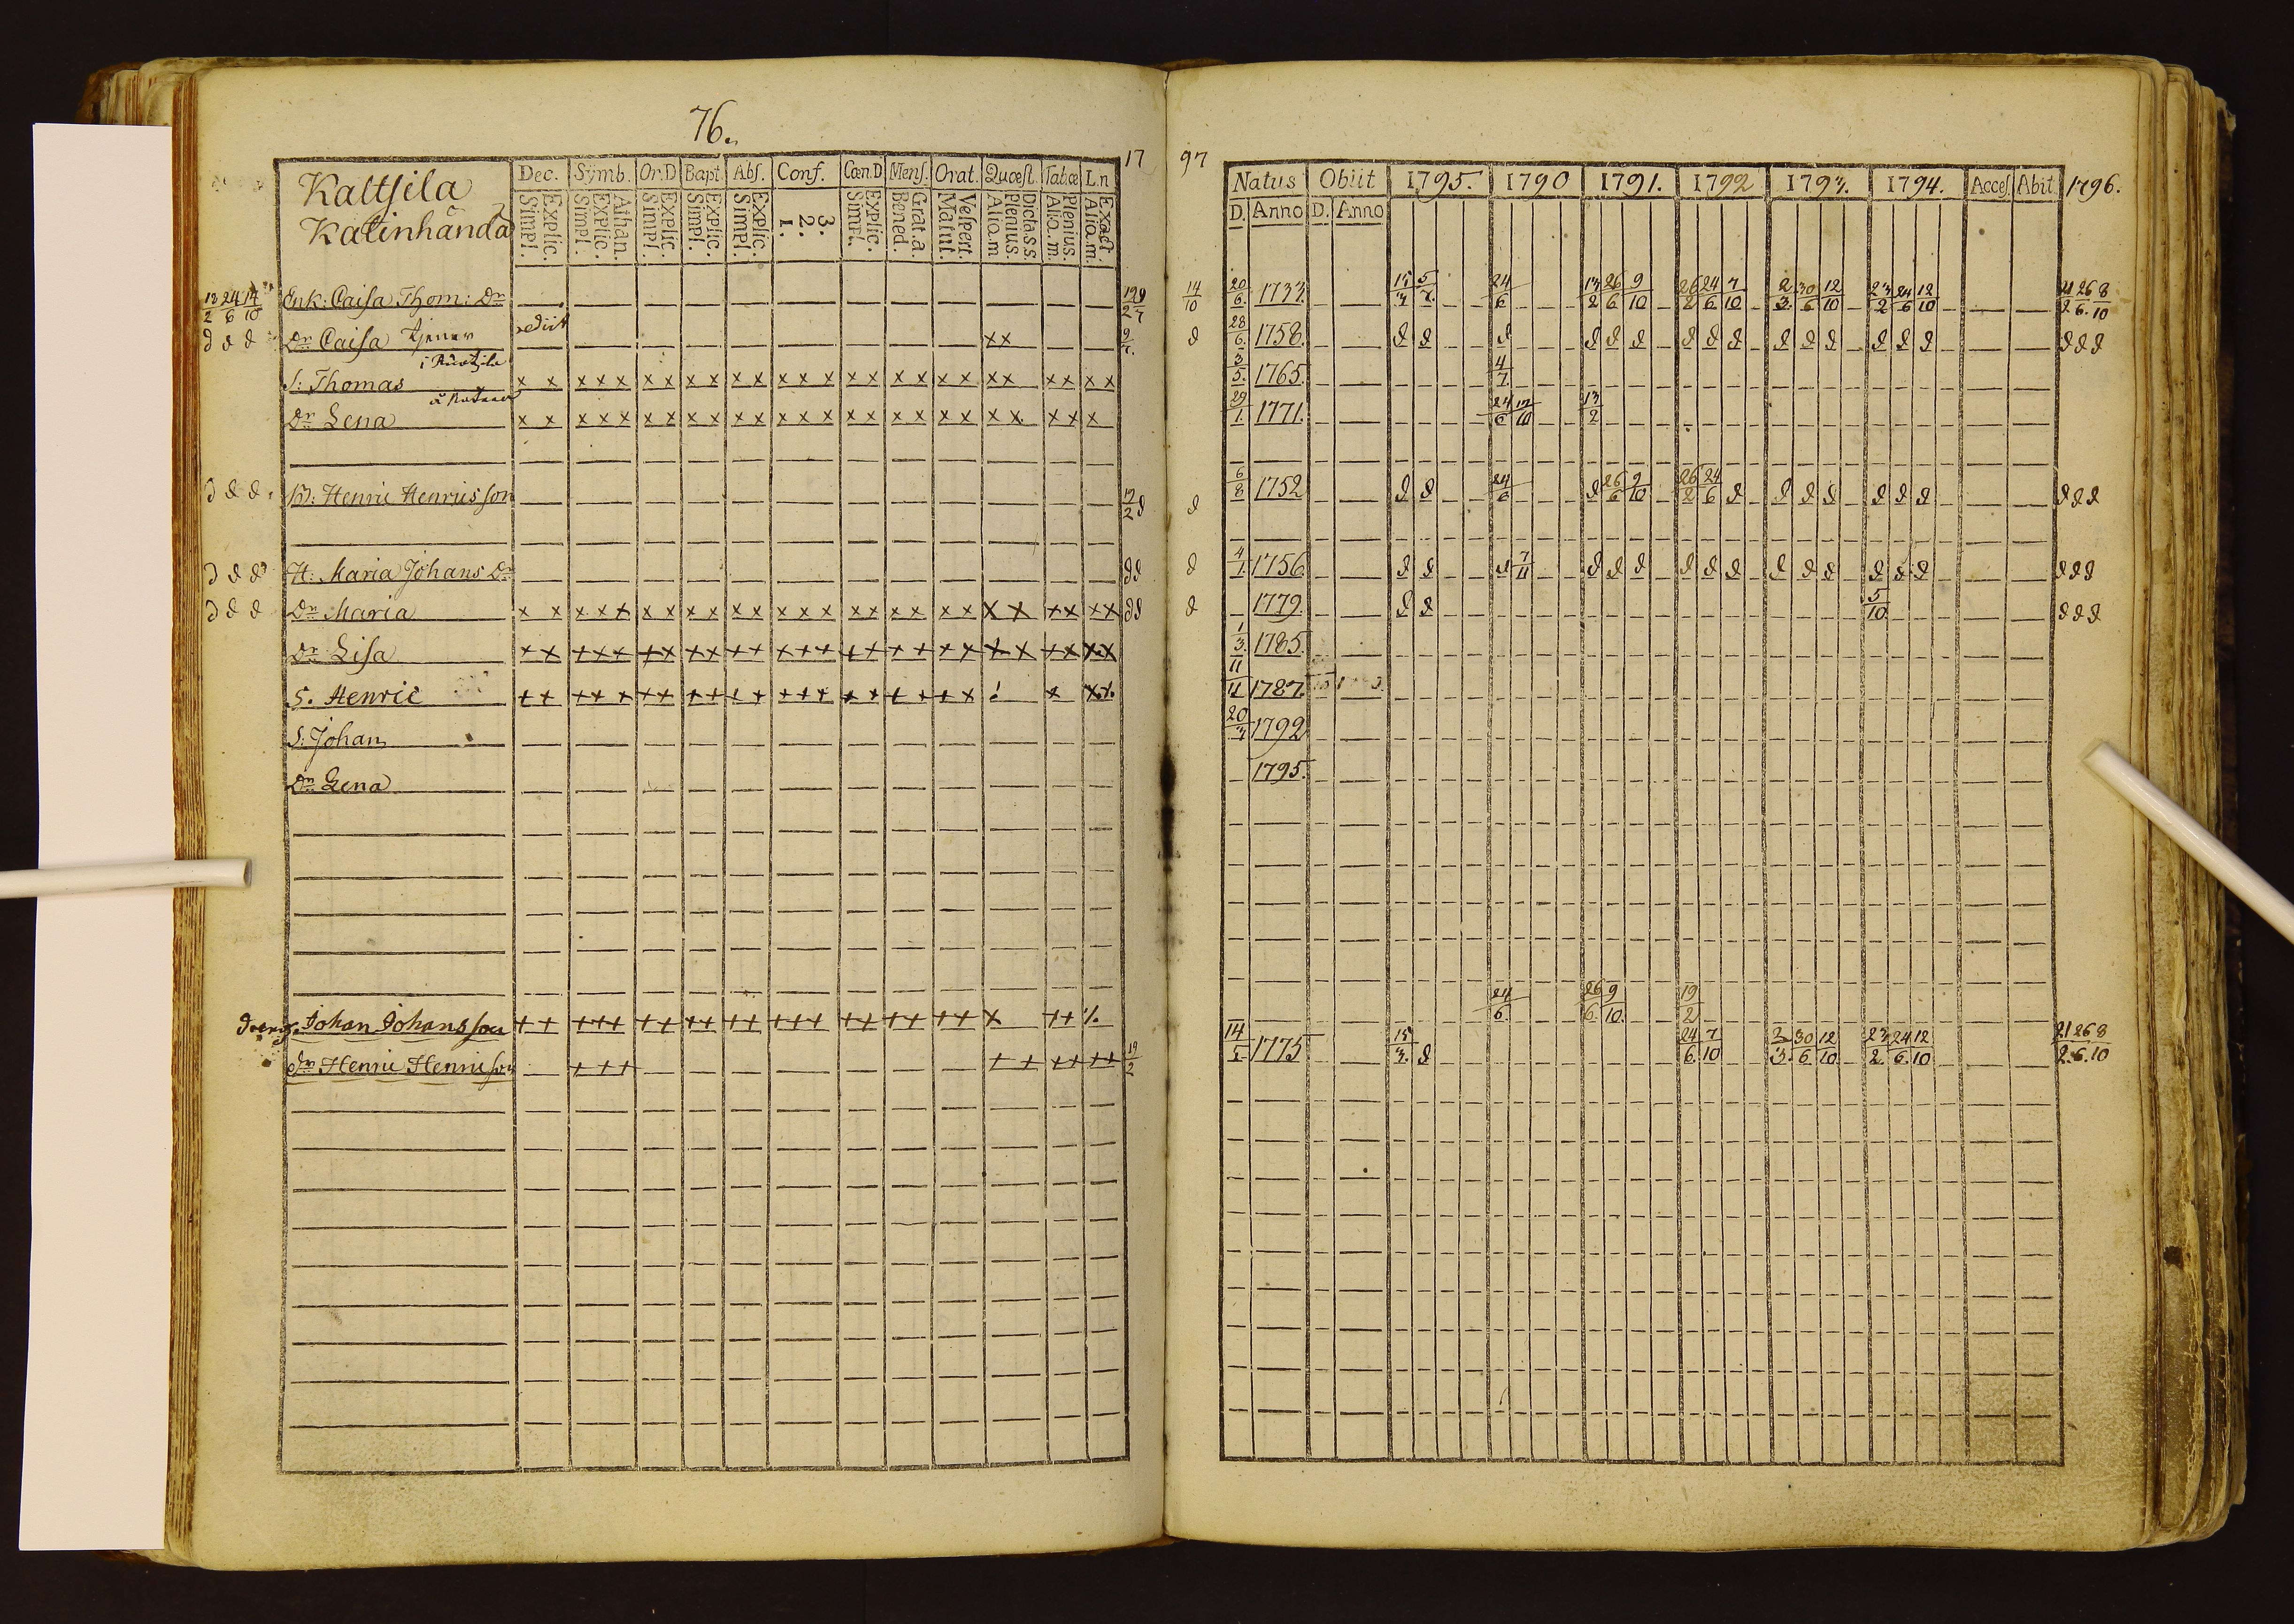 76.
Kaltsila
Katinhända
Dec. Symb. Or.D Bapt. Abs. Conf. Cœn.D Mens. Orat. Quæst. Tabœ L.n
Explic. Simpl. Athan. Explic. Simpl. Explic. Simpl. Explic. Simpl. Explic. Simpl. 3. 2. 1. Explic. Simpl. Grat. a. Bened. Vespert. Matut. Dicta s.s. Plenius. Aliq.m Plenius. Aliq.m. Exact. Aliq.m.
17 97
Natus Obiit 1795. 1790 1791. 1792 1793. 1794. Acces. Abit. 1796.
D. Anno D. Anno
18/2 24/6 14/10 Enk: Caisa Thom: Dr 14/10 20/6 1733. 24/6 13/2 26/6 9/10 26/2 24/6 7/10 2/3 30/6 12/10 23/2 24/6 12/10 21/2 26/6 8/10
d d d Dr Caisa tjenar rediit xx d 28/6 1758. d d d d d d d d d d d d d d d d d d
i
S: Thomas x x x x x x x x x x x x x x x x x x x x x x x x x x 3/5. 1765. 4/7
Dr Lena x x x x x x x x x x x x x x x x x x x x x x x x x 29/1. 1771. 24/6 13/2
d d d Henric Henricsson d 6/8 1752 d d 24/6 d 26/6 9/10 26/2 24/6 d d d d d d d d d d
d d d H: Maria Johans Dr d d d 4/1. 1756 d d d 7/11 d d d d d d d d d d d d d d d
d d d Dr Maria x x x x x x x x x x x x x x x x x x x x x x x x x x d d d 1779. d d 5/10. d d d
Dr Lisa x x x x x x x x x x x x x x x x x x x x x x x x x x 1/3. 1785.
S. Henric x x x x x x x x x x x x x x x x x x x x 11/11 1787.
S: Johan 20/3 1792
Dr Lena 1795.
Johan Johansson + + + + + + + + + + + + + + + + + + + + + + x + + 24/6. 26/6. 9/10. 19/2
Henric Henricson + + + + + + + + + 19/2 14/5 1775 15/3. d 24/6. 7/10 2/3. 30/6 12/10 23/2 24/6. 12/10 21/2. 26/6. 8/10